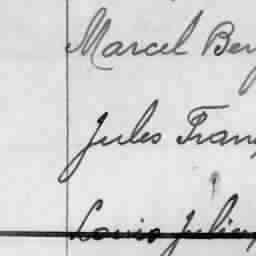 Marcel Ber
Jules Franç
Louis Julien